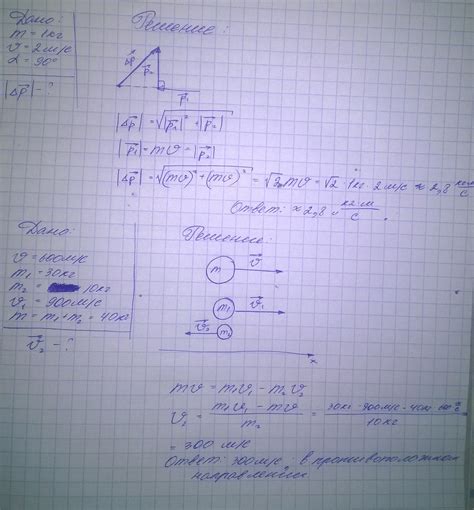 Дано:
m = 1кг
υ = 2м/с
α = 90°
|Δp⃗| - ?
Решение:
Δp⃗
p⃗₂
p⃗₁
|Δp⃗| = √(|p⃗₁|² + |p⃗₂|²)
|p⃗₁| = mυ = |p⃗₂|
|Δp⃗| = √((mυ)² + (mυ)²) = √2 mυ = √2 · 1кг · 2м/с ≈ 2,8 кг·м/с
Ответ: ≈ 2,8 кг·м/с.
Дано:
υ = 600м/с
m₁ = 30кг
m₂ = 10кг
υ₁ = 900м/с
m = m₁ + m₂ = 40кг
υ⃗₂ - ?
Решение:
m υ⃗
m₁ υ⃗₁
υ⃗₂ m₂
x
mυ = m₁υ₁ - m₂υ₂
υ₂ = (m₁υ₁ - mυ)/m₂ = (30кг · 900м/с - 40кг · 600м/с)/10кг
= 300 м/с
Ответ: 300м/с в противоположном
направлении